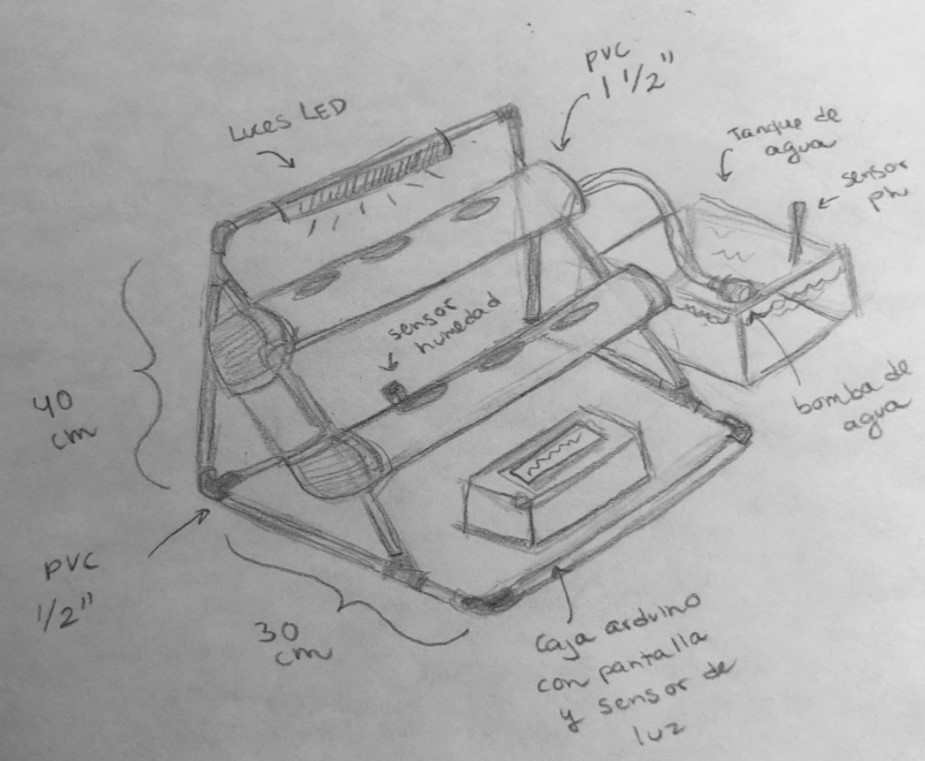 Luces LED
PVC
1 1/2"
Tanque de
agua
sensor
ph
sensor
humedad
40
cm
bomba de
agua
PVC
1/2"
30
cm
Caja arduino
con pantalla
y sensor de
luz